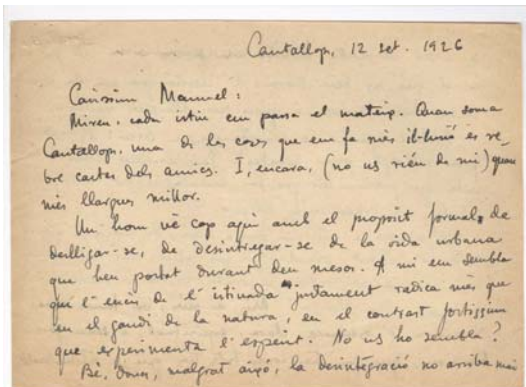 Cantallops, 12 set. 1926
Caríssim Manuel:
Mireu, cada istiu em passa el mateix. Quan soma
Cantallops, una de les coses que em fa més il·lusió es re-
bre cartes dels amics. I, encara, (no us rieu de mi) quan
més llargues millor.
Un hom ve cap aquí amb el propòsit formal de
deslligar-se, de desintregar-se de la vida urbana
que heu portat durant deu mesos. A mi em sembla
que l'encís de l'istiuada justament radica més que
en el gaudi de la natura, en el contrast fortíssim
que experimenta l'esperit. No us ho sembla?
Bé, doncs, malgrat això, la desintegració no arriba mai